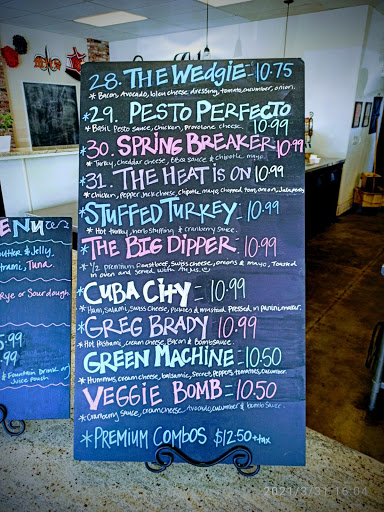 28. THE WEDGIE = 10.75
* Bacon, Avocado, bleu cheese dressing, tomato, cucumber, onion.
*29. PESTO PERFECTO
* Basil Pesto sauce, chicken, provolone cheese. 10.99
*30. SPRING BREAKER 10.99
* Turkey, cheddar cheese, BBQ sauce & chipotle mayo.
*31. THE HEAT is ON 10.99
* Chicken, pepper Jack cheese, chipotle mayo, chopped tom, onion, Jalapeños
*STUFFED TURKEY: 10.99
* Hot turkey, herb stuffing & cranberry sauce.
*THE BIG DIPPER 10.99
* 1/2 premium Roast beef, Swiss cheese, onions & mayo, Toasted
in oven and served with AU JUS.
*CUBA CITY = 10.99
* Ham, Salami, Swiss cheese, Pickles & mustard. Pressed in panini maker.
*GREG BRADY 10.99
* Hot Pastrami, cream cheese, Bacon &
GREEN MACHINE = 10.50
* Hummus, cream cheese, balsamic, Secret, Peppers, tomatoes, cucumber.
*VEGGIE BOMB = 10.50
* Cranberry Sauce, cream cheese, Avocado, cucumber & sauce.
*PREMIUM COMBOS $12.50+tax
ENU
utter & Jelly
trami, Tuna.
Rye or Sourdough.
5.99
.99
& Fountain Drink or
Juice Pouch
2021/3/31 16:04